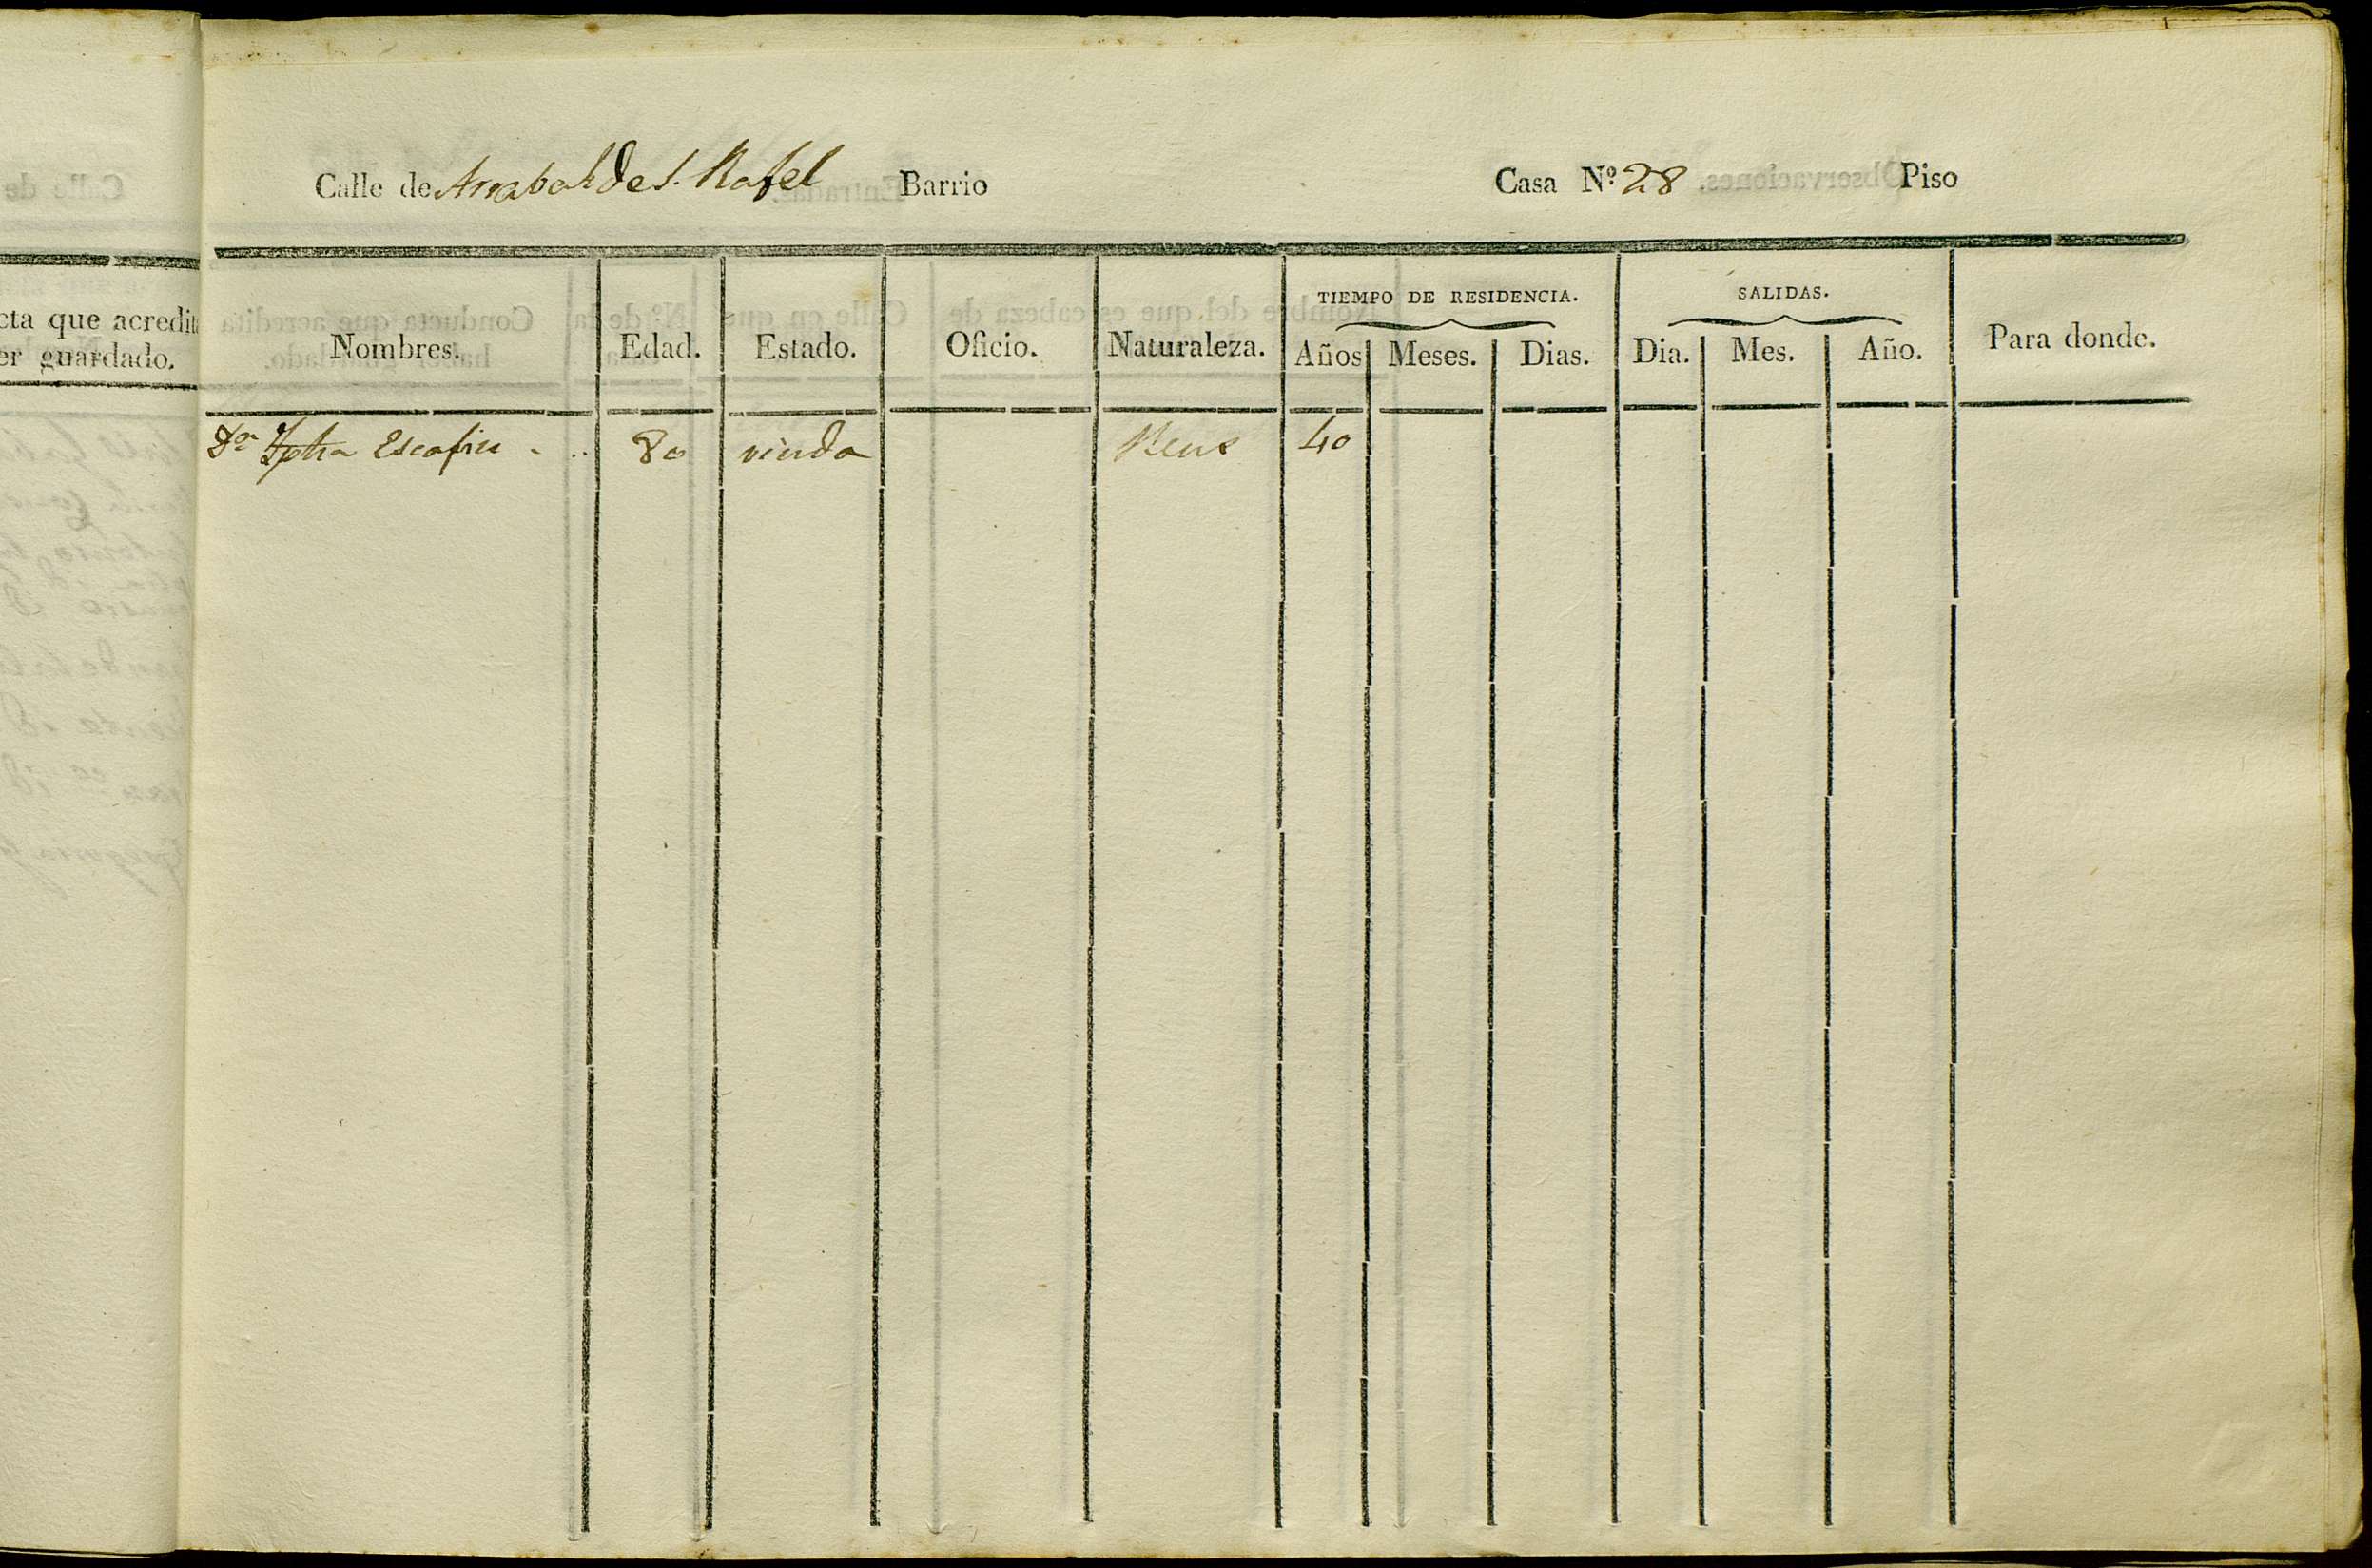 Calle de Arrabal de S. Rafel Barrio Casa Nº 28 Piso
cta que acredita
er guardado.
Nombres. Edad. Estado. Oficio. Naturaleza. TIEMPO DE RESIDENCIA. SALIDAS. Para donde.
Años Meses. Dias. Dia. Mes. Año.
Dª Escofiu 80 viuda Reus 40